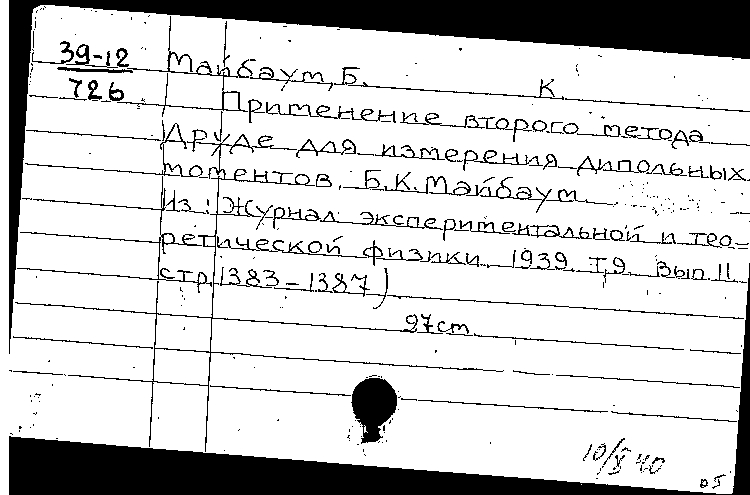 39-12
726
Майбаум, Б. К.
Применение второго метода
Друде для измерения дипольных
моментов. Б.К. Майбаум.
Из: Журнал экспериментальной и тео-
ретической физики. 1939. т,9. вып. 11
стр. 1383-1387)
27 cm.
10/X 40